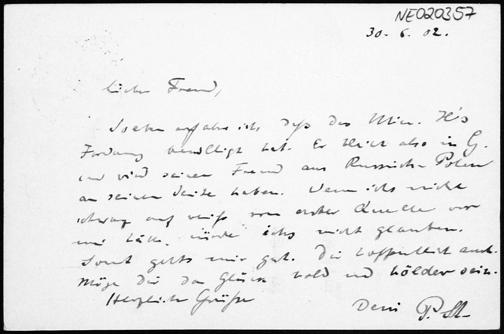 NE020357
30. 6. 02.
Lieber Freund,
Soeben erfahre ich, dass das Min. H's
Fordung bewilligt hat. Er bleibt also in G.
und wird seinen Freund aus Russisch Polen
an seiner Seite haben. Wenn ich's nicht
schwarz auf weiss von erster Quelle vor
mir hätte, würde ich's nicht glauben.
Sonst geht's mir gut. Dir hoffentlich auch.
Möge Dir das Glück hold und hölder sein.
Herzliche Grüsse
Dein P. St.